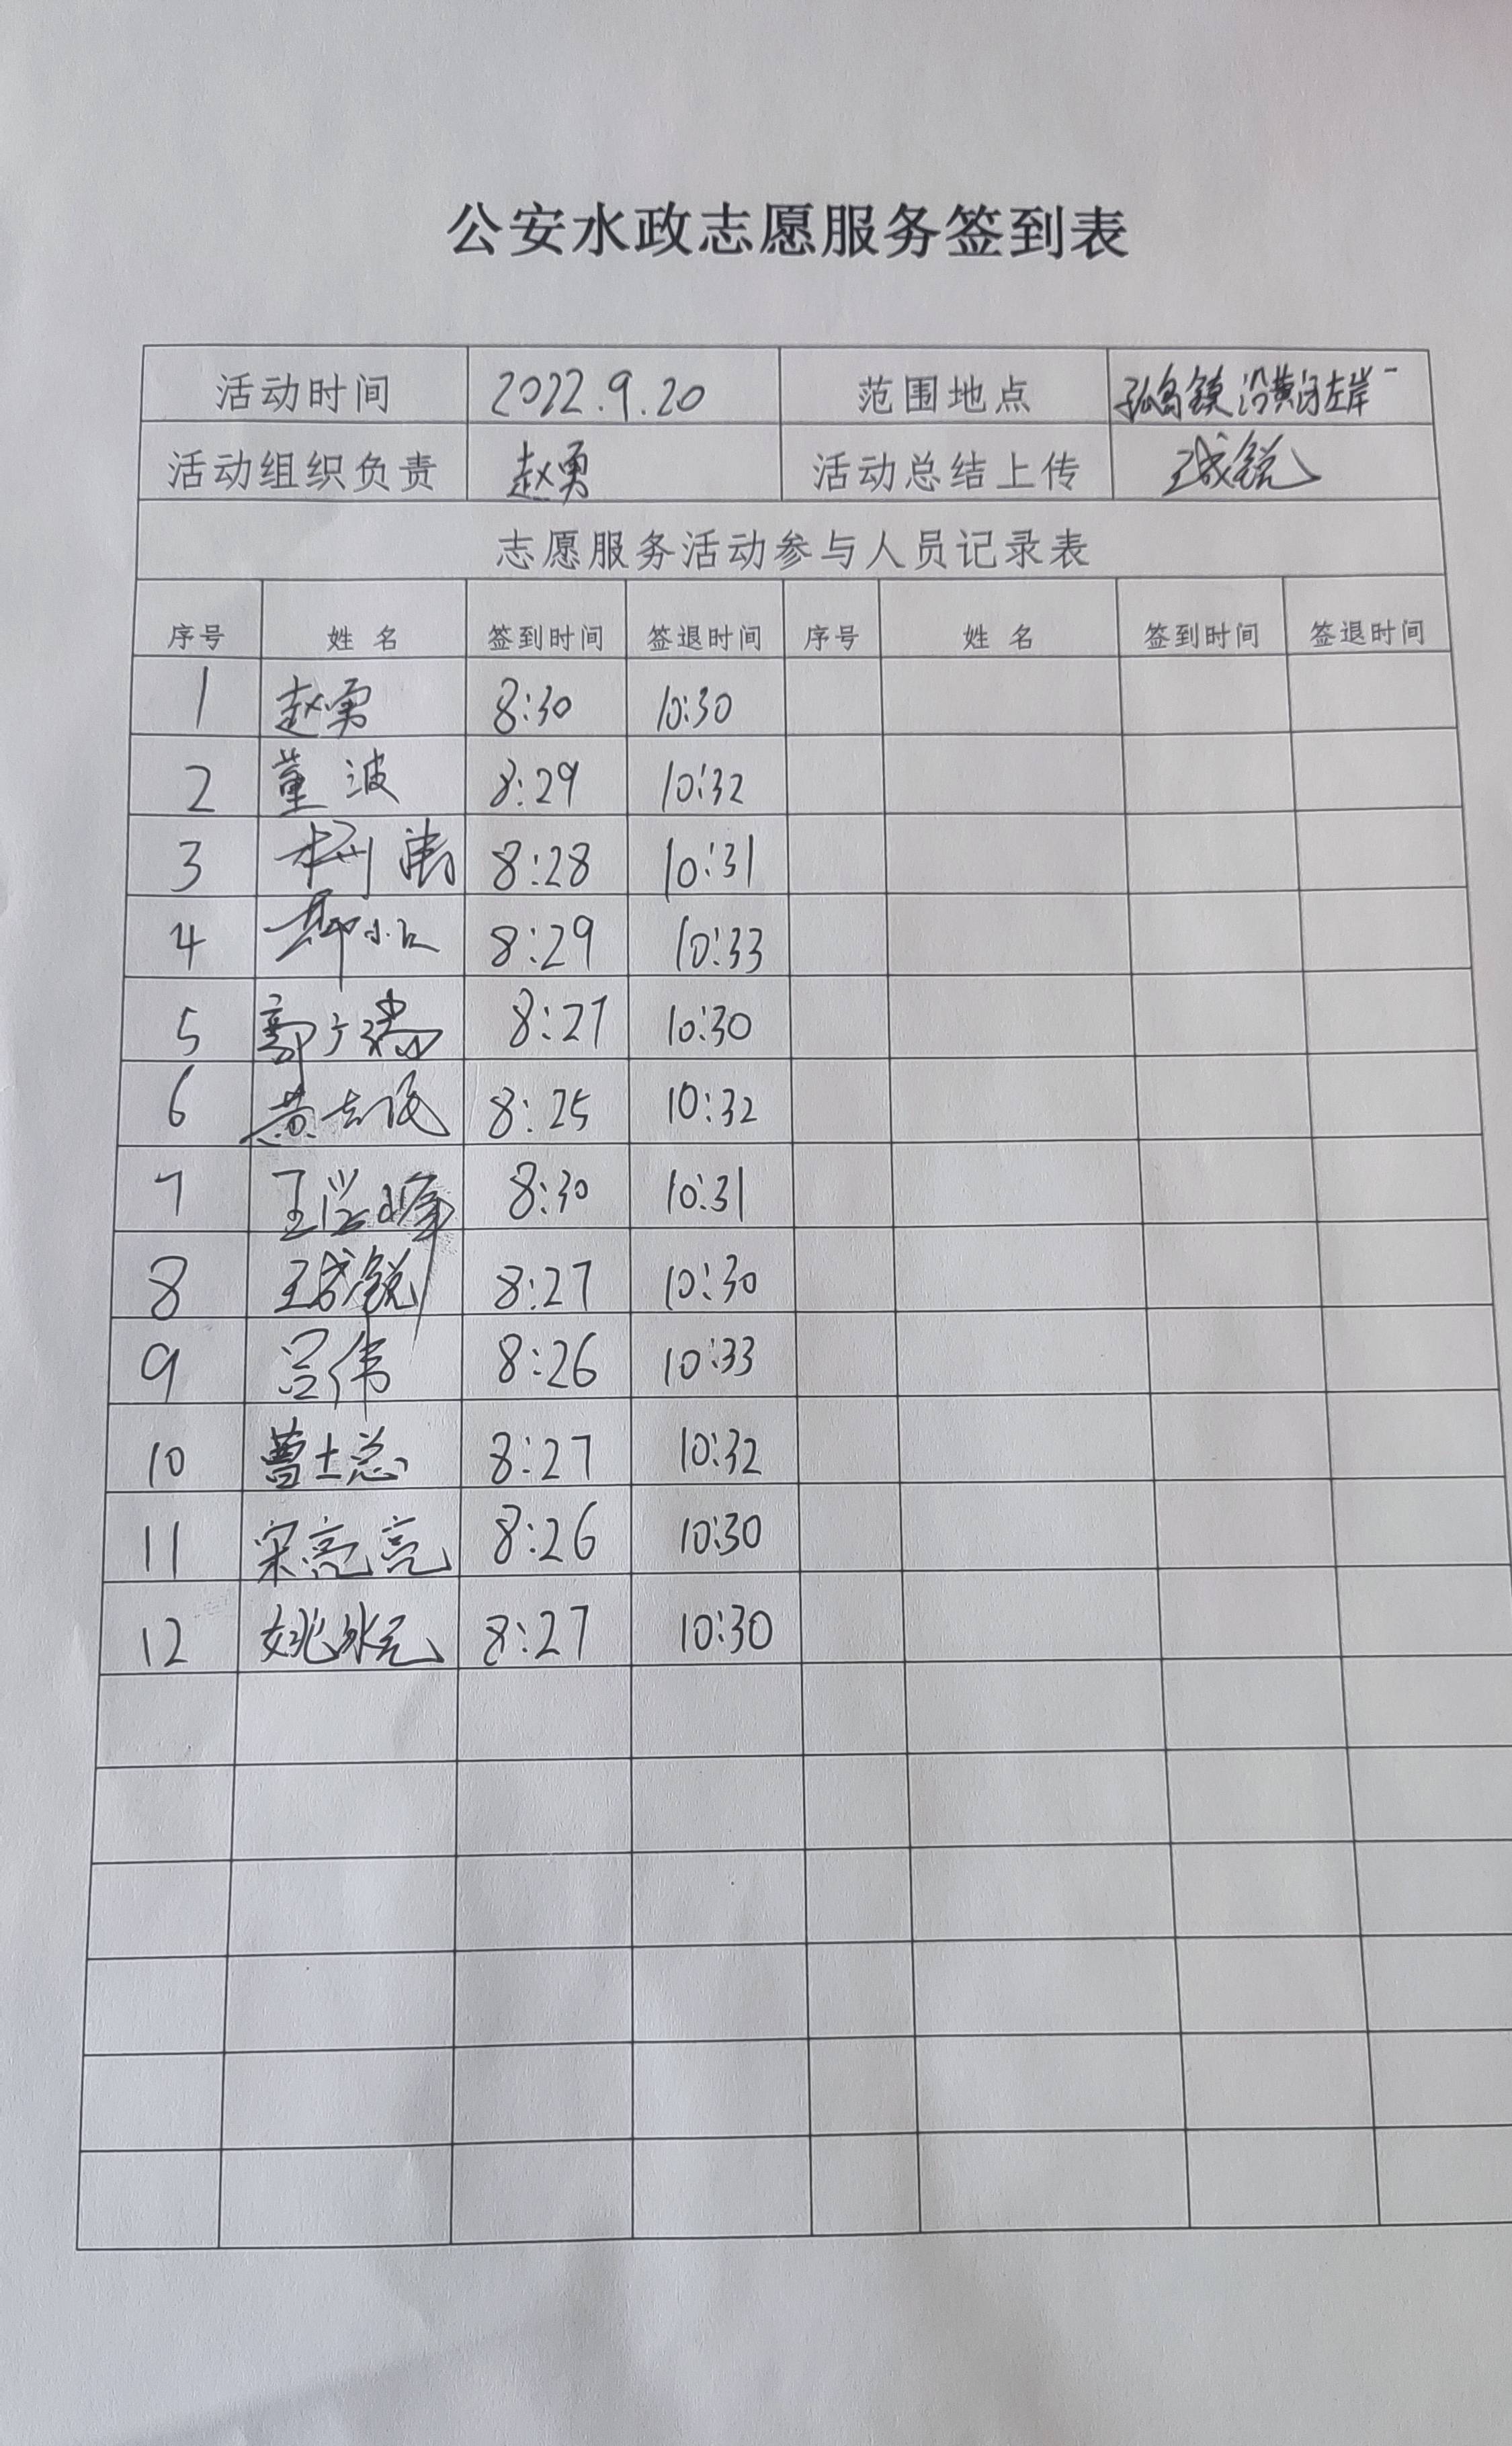 公安水政志愿服务签到表
活动时间 2022.9.20 范围地点 孤岛镇沿黄河左岸
活动组织负责 赵勇 活动总结上传 王成锐
志愿服务活动参与人员记录表
序号 姓名 签到时间 签退时间 序号 姓名 签到时间 签退时间
1 赵勇 8:30 10:30
2 董波 8:29 10:32
3 8:28 10:31
4 8:29 10:33
5 8:27 10:30
6 8:25 10:32
7 8:30 10:31
8 王成锐 8:27 10:30
9 吕伟 8:26 10:33
10 曹士总 8:27 10:32
11 宋亮亮 8:26 10:30
12 8:27 10:30